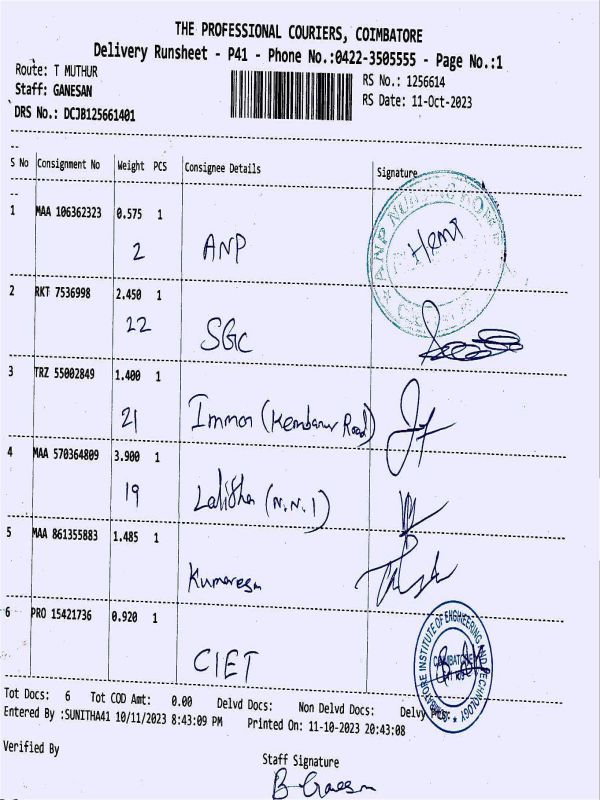 THE PROFESSIONAL COURIERS, COIMBATORE
Delivery Runsheet - P41 - Phone No.:0422-3505555 - Page No.:1
Route: T MUTHUR
RS No.: 1256614
Staff: GANESAN
RS Date: 11-Oct-2023
DRS No.: DCJB125661401
S No Consignment No Weight PCS Consignee Details Signature
1 MAA 106362323 0.575 1
2 ANP Hemi
2 RKT 7536998 2.450 1
22 SGC
3 TRZ 55002849 1.400 1
21 Immon (Kembanur Road)
4 MAA 570364809 3.900 1
19 Lalitha (N.N.1)
5 MAA 861355883 1.485 1
Kumaresan
6 PRO 15421736 0.920 1
CIET
COIMBATORE INSTITUTE OF ENGINEERING AND TECHNOLOGY
Tot Docs: 6 Tot COD Amt: 0.00 Delvd Docs: Non Delvd Docs: Delvy
Entered By :SUNITHA41 10/11/2023 8:43:09 PM Printed On: 11-10-2023 20:43:08
Verified By
Staff Signature